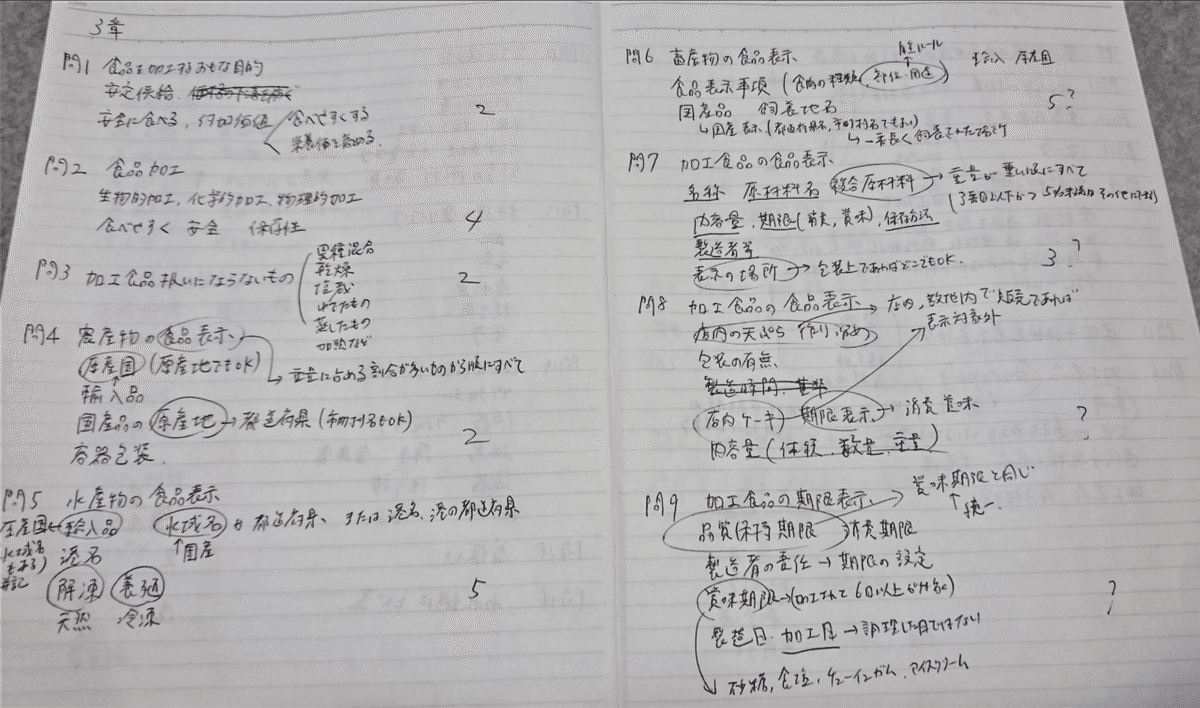 3章
問1 食品を加工するおもな目的
安定供給、
安全に食べる、付加価値 食べやすくする
栄養価を高める。
2
問2 食品加工
生物的加工、化学的加工、物理的加工
食べやすく 安全 保存性
4
問3 加工食品扱いにならないもの
異種混合
乾燥
塩蔵
ゆでたもの
蒸したもの
加熱など
2
問4 農産物の食品表示
原産国 (原産地でもOK) → 重量に占める割合が多いものから順にすべて
輸入品
国産品の原産地→都道府県 (市町村名もOK)
容器包装。
2
問5 水産物の食品表示
原産国←輸入品 水域名 都道府県、または港名、港の都道府県
水域名
併記
港名 ↑国産
解凍 養殖
天然 冷凍
5
問6 畜産物の食品表示 ルール 輸入 原産国
食品表示事項 (食肉の種類、部位・用途)
国産品 飼養地名
5?
↳国産表示 (都道府県名、市町村名でもよい)
↳一番長く飼養された場所
問7 加工食品の食品表示
名称 原材料名 複合原材料→重量が重い順にすべて
(3番目以下かつ5%未満はその他
内容量、期限(消費、賞味)、保存方法
製造者等
表示の場所→包装上であればどこでもOK.
3?
問8 加工食品の食品表示→店内、敷地内で販売であれば
表示対象外
店内の天ぷら
包装の有無
製造時間
店内ケーキ 期限表示→消費 賞味
内容量(体積、数量、重量)
?
問9 加工食品の期限表示→賞味期限と同じ
↑統一.
品質保持期限 消費期限
製造者の責任→期限の設定
賞味期限→
?
製造日、加工日→調理した日ではない
砂糖、食塩、チューインガム、アイスクリーム